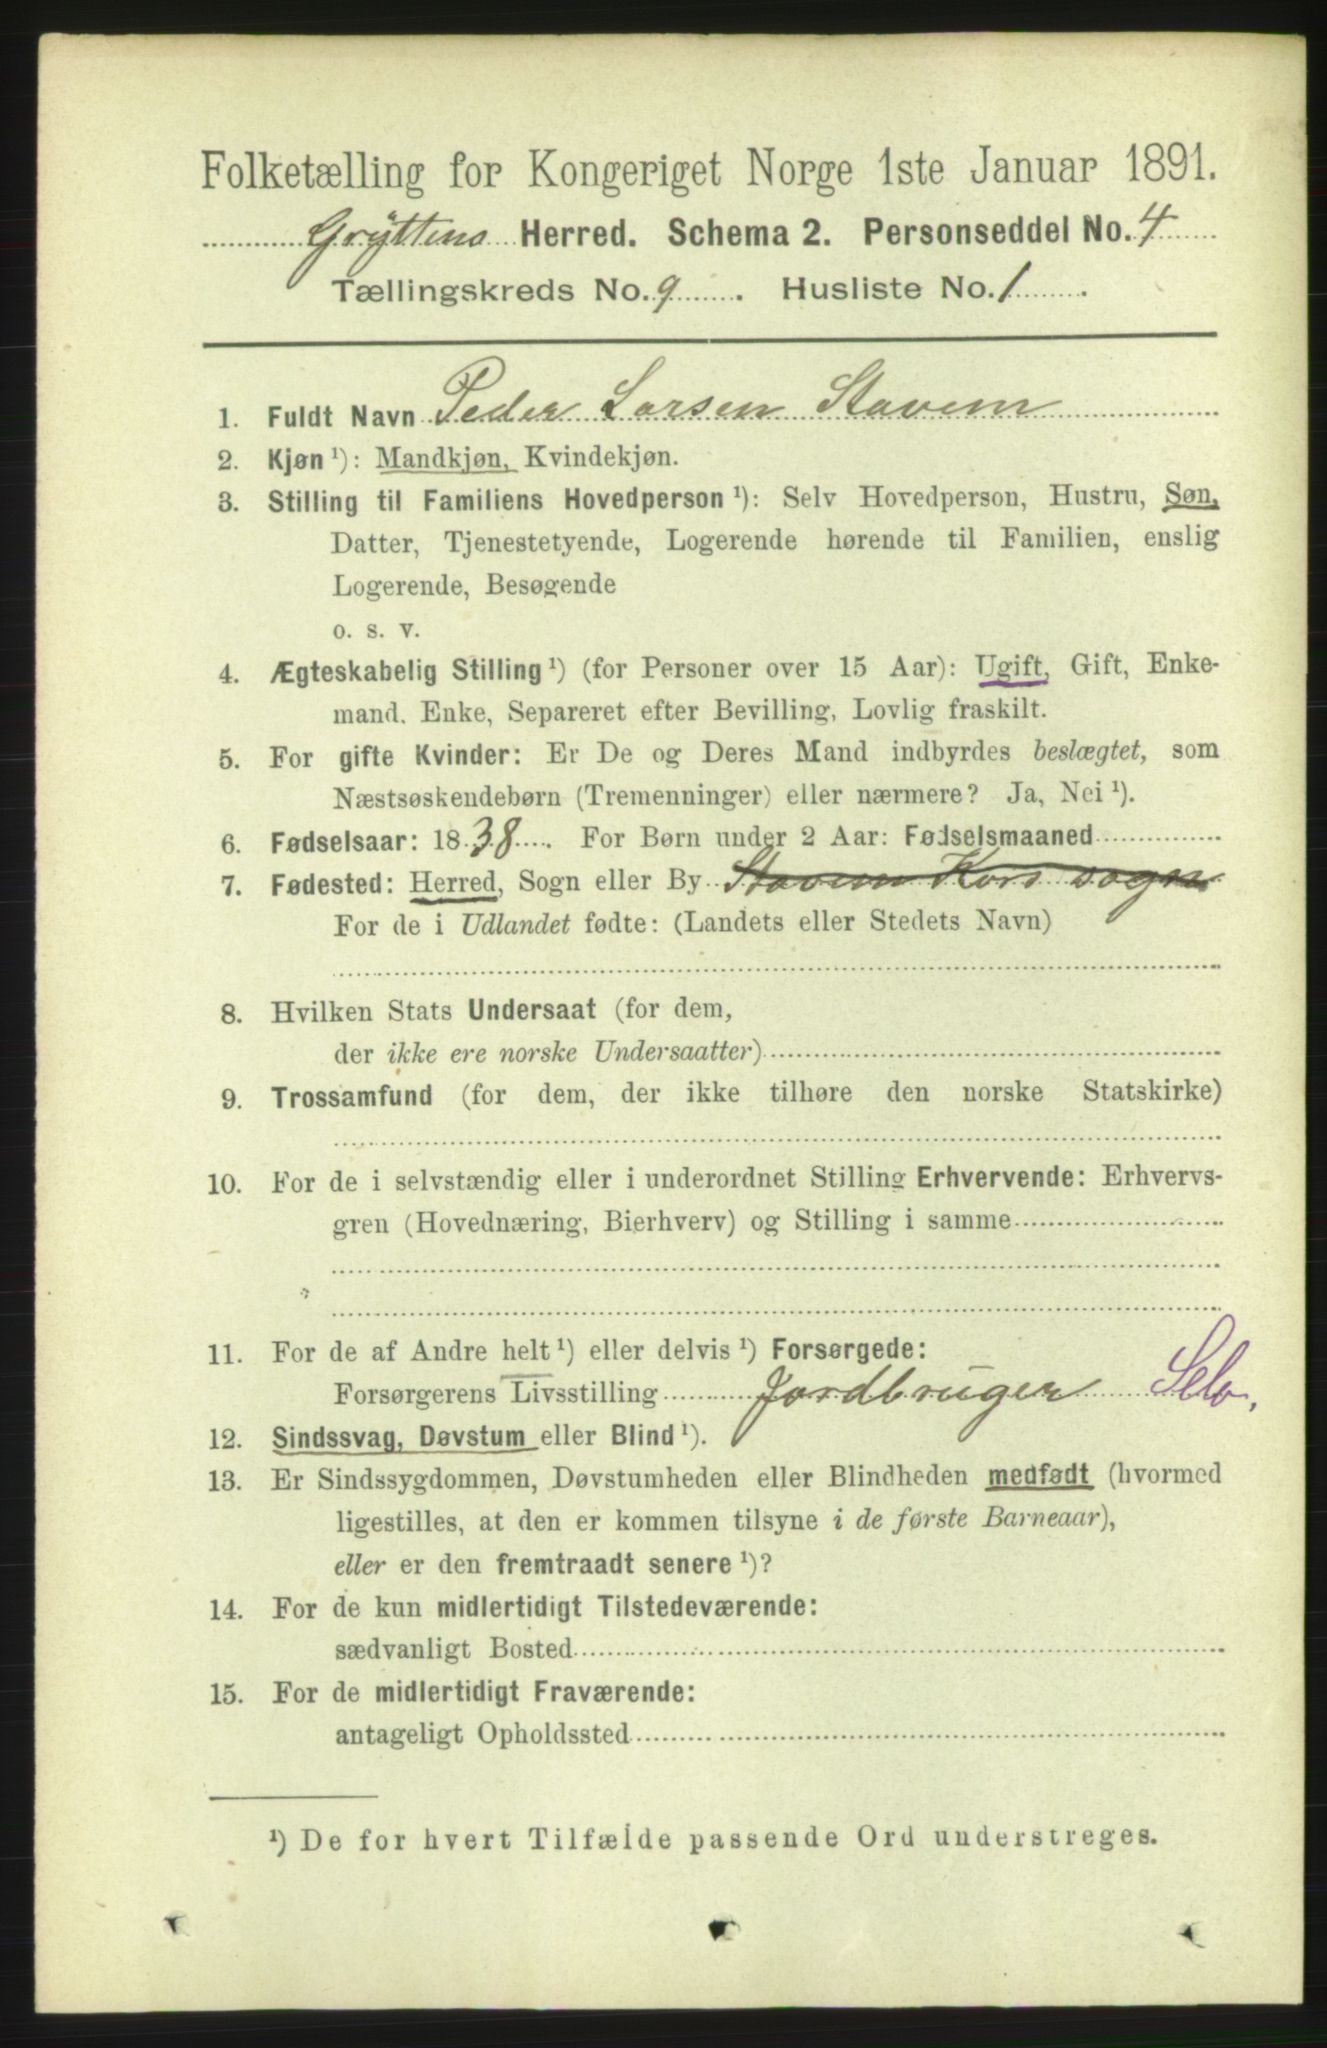 Folketælling for Kongeriget Norge 1ste Januar 1891.
Gryttens Herred. Schema 2. Personseddel No. 4
Tællingskreds No. 9. Husliste No. 1.
1. Fuldt Navn Peder Larsen Stavem
2. Kjøn ¹): Mandkjøn, Kvindekjøn.
3. Stilling til Familiens Hovedperson ¹): Selv Hovedperson, Hustru, Søn,
Datter, Tjenestetyende, Logerende hørende til Familien, enslig
Logerende, Besøgende
o. s. v.
4. Ægteskabelig Stilling ¹) (for Personer over 15 Aar): Ugift, Gift, Enke-
mand, Enke, Separeret efter Bevilling, Lovlig fraskilt.
5. For gifte Kvinder: Er De og Deres Mand indbyrdes beslægtet, som
Næstsøskendebørn (Tremenninger) eller nærmere? Ja, Nei ¹).
6. Fødselsaar: 1838. For Børn under 2 Aar: Fødselsmaaned
7. Fødested: Herred, Sogn eller By Stavem Kors sogn
For de i Udlandet fødte: (Landets eller Stedets Navn)
8. Hvilken Stats Undersaat (for dem,
der ikke ere norske Undersaatter)
9. Trossamfund (for dem, der ikke tilhøre den norske Statskirke)
10. For de i selvstændig eller i underordnet Stilling Erhvervende: Erhvervs-
gren (Hovednæring, Bierhverv) og Stilling i samme
11. For de af Andre helt ¹) eller delvis ¹) Forsørgede:
Forsørgerens Livsstilling Jordbruger Selv.
12. Sindssvag, Døvstum eller Blind ¹).
13. Er Sindssygdommen, Døvstumheden eller Blindheden medfødt (hvormed
ligestilles, at den er kommen tilsyne i de første Barneaar),
eller er den fremtraadt senere ¹)?
14. For de kun midlertidigt Tilstedeværende:
sædvanligt Bosted
15. For de midlertidigt Fraværende:
antageligt Opholdssted
¹) De for hvert Tilfælde passende Ord understreges.